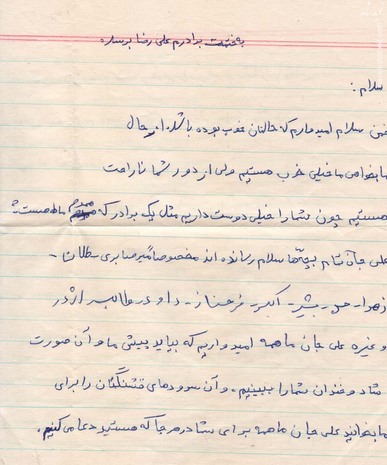 بخدمت برادرم علی رضا برسد
سلام :
ضمن سلام امیدوارم که حالتان خوب بوده باشد. از حال
ما بخواهی ما خیلی خوب هستیم ولی از دور شما ناراحت
هستیم چون شما را خیلی دوست داریم مثل یک برادر که ما هست
علی جان تمام بچه‌ها سلام رسانده اند مخصوصاً امیر صابری سلطان -
زهرا - حسن - بشیر - اکبر - فرحناز - داود و طالب اژدر
و غیره علی جان ما همه امیدواریم که بیاید پیش ما و آن صورت
شاد و خندان شما را ببینیم. و آن سرودهای قشنگتان را برای
ما بخوانید علی جان ما همه برای شما در هر جا که هستید دعا می‌کنیم.